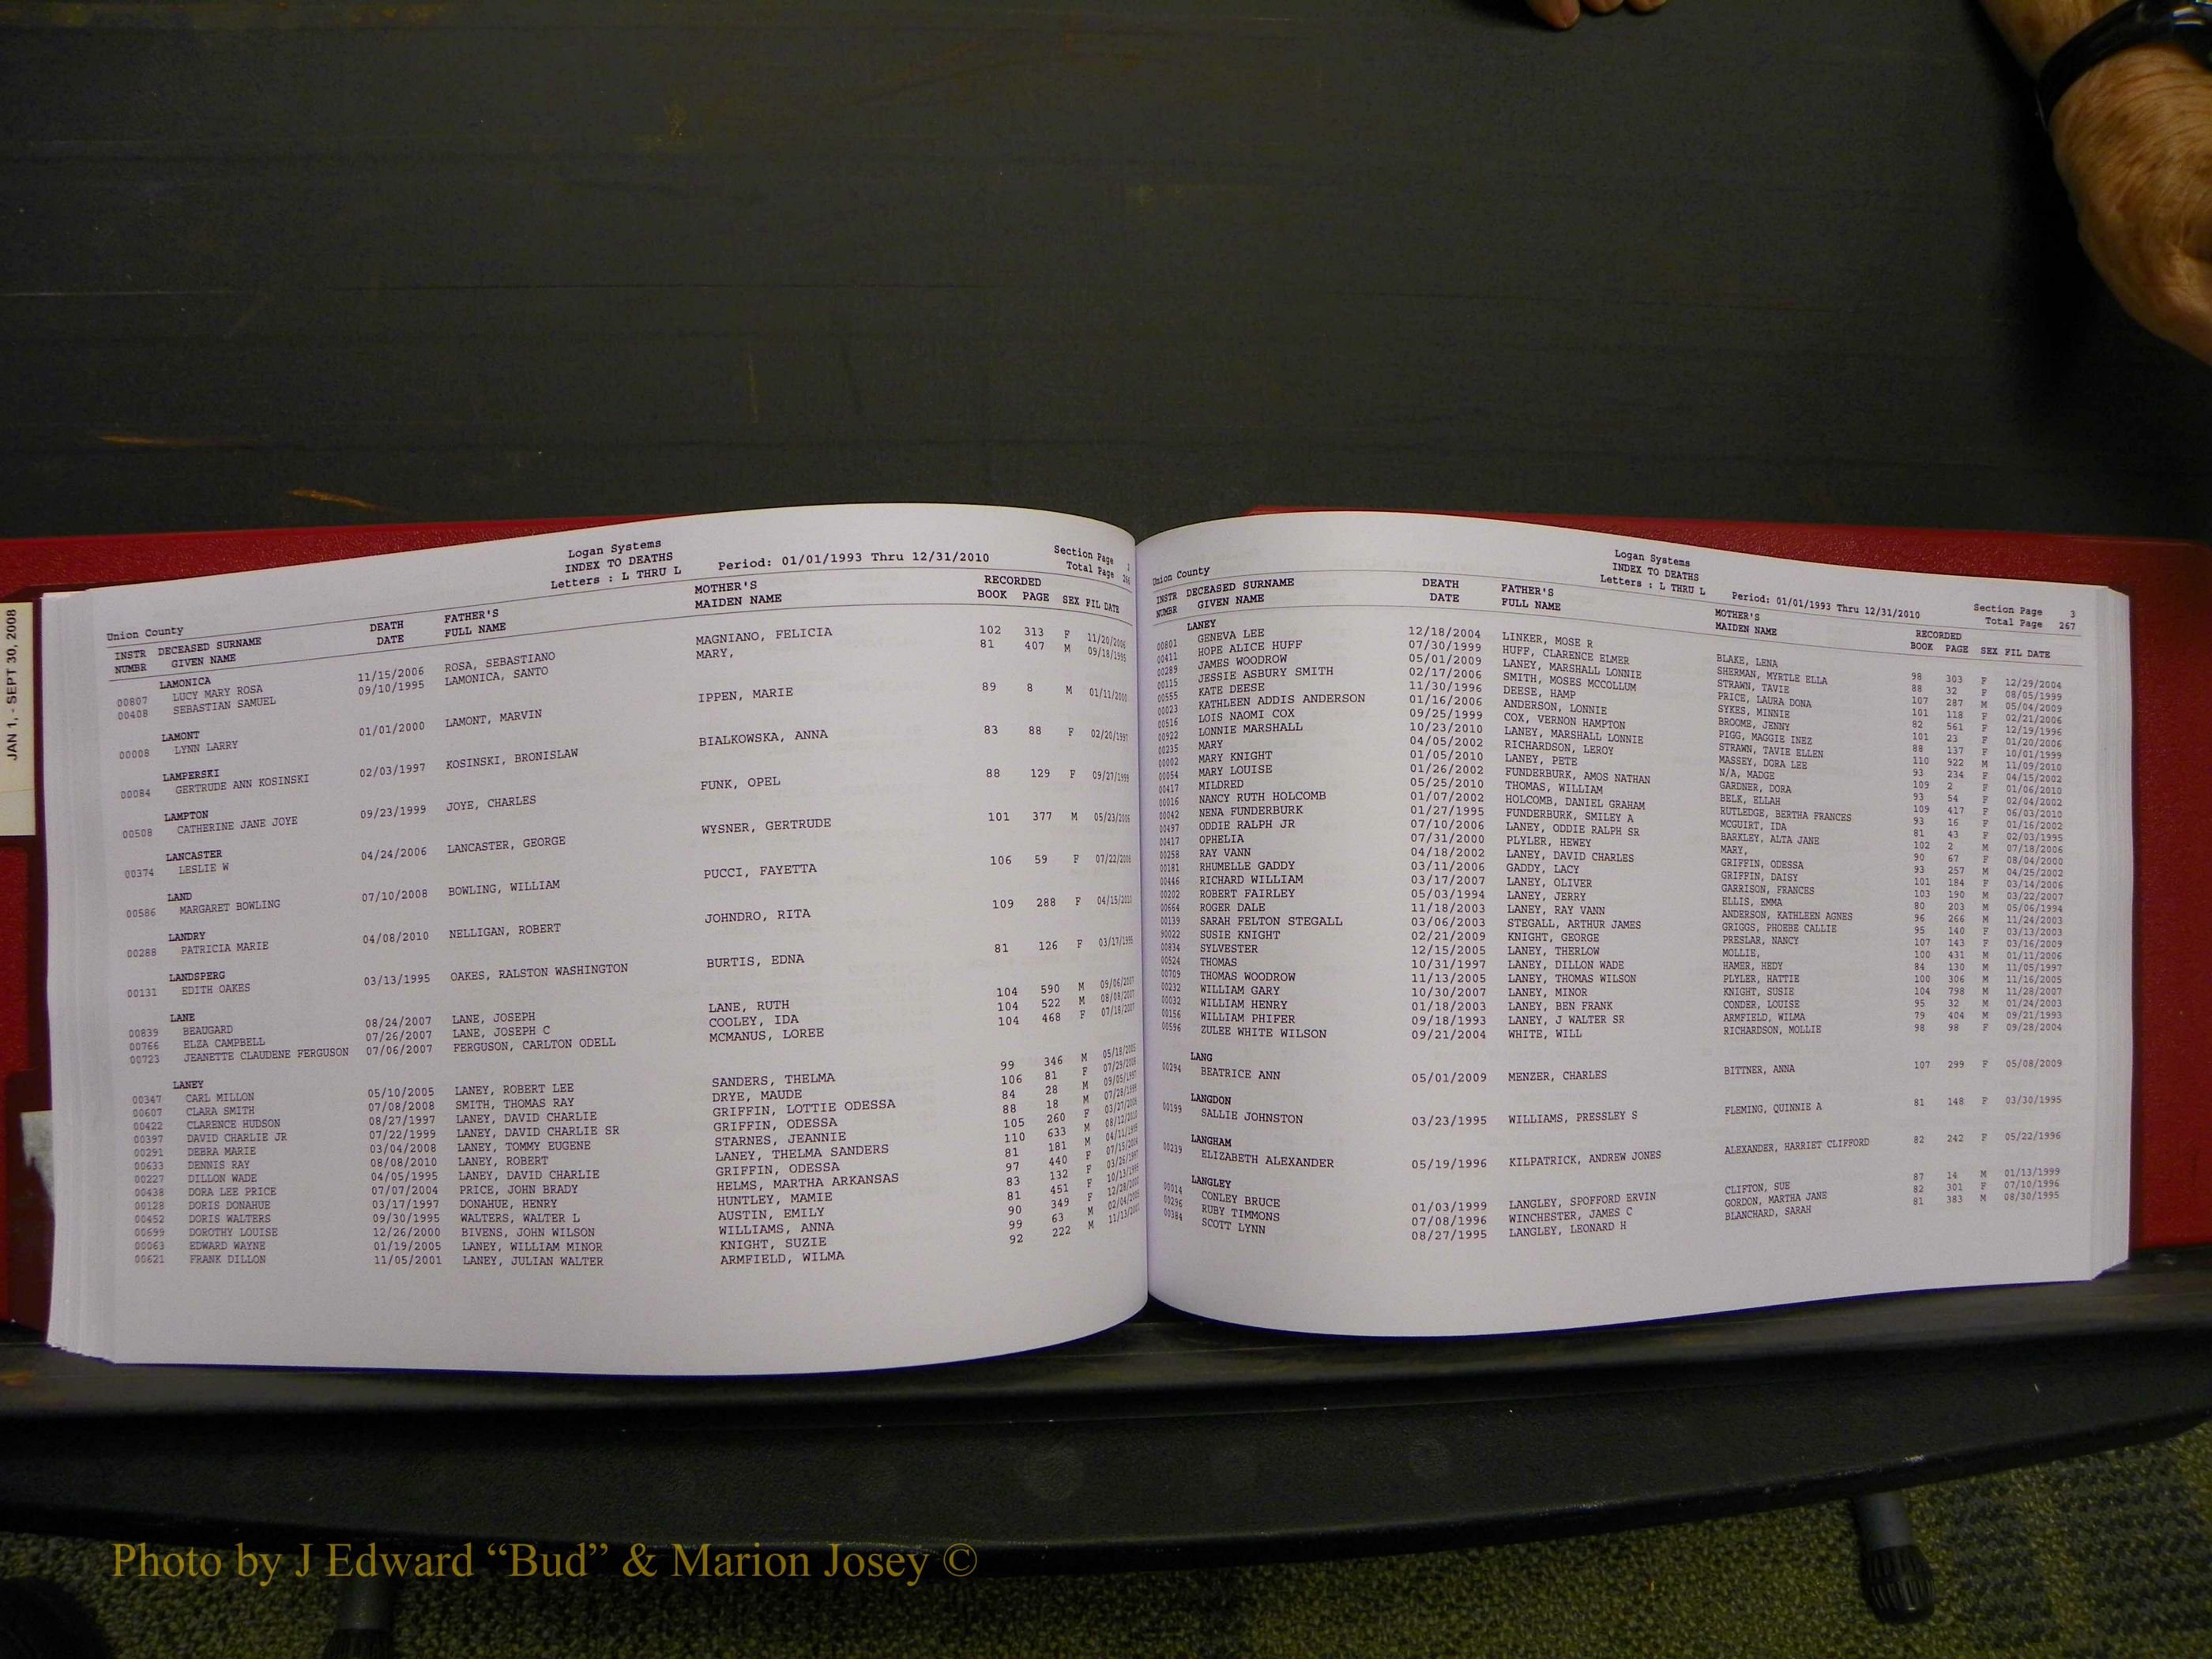 JAN 1, - SEPT 30, 2008
Logan Systems
INDEX TO DEATHS
Letters : L THRU L
Period: 01/01/1993 Thru 12/31/2010
Section Page
Total Page 266
Union County
INSTR NUMBR DECEASED SURNAME GIVEN NAME DEATH DATE FATHER'S FULL NAME MOTHER'S MAIDEN NAME RECORDED BOOK PAGE SEX FIL DATE
LAMONICA
00807 LUCY MARY ROSA 11/15/2006 ROSA, SEBASTIANO MAGNIANO, FELICIA 102 313 F 11/20/2006
00408 SEBASTIAN SAMUEL 09/10/1995 LAMONICA, SANTO MARY, 81 407 M 09/18/1995
LAMONT
00008 LYNN LARRY 01/01/2000 LAMONT, MARVIN IPPEN, MARIE 89 8 M 01/11/2000
LAMPERSKI
00084 GERTRUDE ANN KOSINSKI 02/03/1997 KOSINSKI, BRONISLAW BIALKOWSKA, ANNA 83 88 F 02/20/1997
LAMPTON
00508 CATHERINE JANE JOYE 09/23/1999 JOYE, CHARLES FUNK, OPEL 88 129 F 09/27/1999
LANCASTER
00374 LESLIE W 04/24/2006 LANCASTER, GEORGE WYSNER, GERTRUDE 101 377 M 05/23/2006
LAND
00586 MARGARET BOWLING 07/10/2008 BOWLING, WILLIAM PUCCI, FAYETTA 106 59 F 07/22/2008
LANDRY
00288 PATRICIA MARIE 04/08/2010 NELLIGAN, ROBERT JOHNDRO, RITA 109 288 F 04/15/2010
LANDSPERG
00131 EDITH OAKES 03/13/1995 OAKES, RALSTON WASHINGTON BURTIS, EDNA 81 126 F 03/17/1995
LANE
00839 BEAUGARD 08/24/2007 LANE, JOSEPH LANE, RUTH 104 590 M 09/06/2007
00766 ELZA CAMPBELL 07/26/2007 LANE, JOSEPH C COOLEY, IDA 104 522 M 08/08/2007
00723 JEANETTE CLAUDENE FERGUSON 07/06/2007 FERGUSON, CARLTON ODELL MCMANUS, LOREE 104 468 F 07/18/2007
LANEY
00347 CARL MILLON 05/10/2005 LANEY, ROBERT LEE SANDERS, THELMA 99 346 M 05/18/2005
00607 CLARA SMITH 07/08/2008 SMITH, THOMAS RAY DRYE, MAUDE 106 81 F 07/29/2008
00422 CLARENCE HUDSON 08/27/1997 LANEY, DAVID CHARLIE GRIFFIN, LOTTIE ODESSA 84 28 M 09/05/1997
00397 DAVID CHARLIE JR 07/22/1999 LANEY, DAVID CHARLIE SR GRIFFIN, ODESSA 88 18 M 07/28/1999
00291 DEBRA MARIE 03/04/2008 LANEY, TOMMY EUGENE STARNES, JEANNIE 105 260 F 03/27/2008
00633 DENNIS RAY 08/08/2010 LANEY, ROBERT LANEY, THELMA SANDERS 110 633 M 08/12/2010
00227 DILLON WADE 04/05/1995 LANEY, DAVID CHARLIE GRIFFIN, ODESSA 81 181 M 04/11/1995
00438 DORA LEE PRICE 07/07/2004 PRICE, JOHN BRADY HELMS, MARTHA ARKANSAS 97 440 F 07/15/2004
00128 DORIS DONAHUE 03/17/1997 DONAHUE, HENRY HUNTLEY, MAMIE 83 132 F 03/26/1997
00452 DORIS WALTERS 09/30/1995 WALTERS, WALTER L AUSTIN, EMILY 81 451 F 10/13/1995
00699 DOROTHY LOUISE 12/26/2000 BIVENS, JOHN WILSON WILLIAMS, ANNA 90 349 F 12/28/2000
00063 EDWARD WAYNE 01/19/2005 LANEY, WILLIAM MINOR KNIGHT, SUZIE 99 63 M 02/04/2005
00621 FRANK DILLON 11/05/2001 LANEY, JULIAN WALTER ARMFIELD, WILMA 92 222 M
Logan Systems
INDEX TO DEATHS
Letters : L THRU L
Period: 01/01/1993 Thru 12/31/2010
Section Page 3
Total Page 267
Union County
INSTR NUMBR DECEASED SURNAME GIVEN NAME DEATH DATE FATHER'S FULL NAME MOTHER'S MAIDEN NAME RECORDED BOOK PAGE SEX FIL DATE
LANEY
00801 GENEVA LEE 12/18/2004 LINKER, MOSE R BLAKE, LENA 98 303 F 12/29/2004
00411 HOPE ALICE HUFF 07/30/1999 HUFF, CLARENCE ELMER SHERMAN, MYRTLE ELLA 88 32 F 08/05/1999
00289 JAMES WOODROW 05/01/2009 LANEY, MARSHALL LONNIE STRAWN, TAVIE 107 287 M 05/04/2009
00115 JESSIE ASBURY SMITH 02/17/2006 SMITH, MOSES MCCOLLUM PRICE, LAURA DONA 101 118 F 02/21/2006
00555 KATE DEESE 11/30/1996 DEESE, HAMP SYKES, MINNIE 82 561 F 12/19/1996
00023 KATHLEEN ADDIS ANDERSON 01/16/2006 ANDERSON, LONNIE BROOME, JENNY 101 23 F 01/20/2006
00516 LOIS NAOMI COX 09/25/1999 COX, VERNON HAMPTON PIGG, MAGGIE INEZ 88 137 F 10/01/1999
00922 LONNIE MARSHALL 10/23/2010 LANEY, MARSHALL LONNIE STRAWN, TAVIE ELLEN 110 922 M 11/09/2010
00235 MARY 04/05/2002 RICHARDSON, LEROY MASSEY, DORA LEE 93 234 F 04/15/2002
00002 MARY KNIGHT 01/05/2010 LANEY, PETE N/A, MADGE 109 2 F 01/06/2010
00054 MARY LOUISE 01/26/2002 FUNDERBURK, AMOS NATHAN GARDNER, DORA 93 54 F 02/04/2002
00417 MILDRED 05/25/2010 THOMAS, WILLIAM BELK, ELLAH 109 417 F 06/03/2010
00016 NANCY RUTH HOLCOMB 01/07/2002 HOLCOMB, DANIEL GRAHAM RUTLEDGE, BERTHA FRANCES 93 16 F 01/16/2002
00042 NENA FUNDERBURK 01/27/1995 FUNDERBURK, SMILEY A MCGUIRT, IDA 81 43 F 02/03/1995
00497 ODDIE RALPH JR 07/10/2006 LANEY, ODDIE RALPH SR BARKLEY, ALTA JANE 102 2 M 07/18/2006
00417 OPHELIA 07/31/2000 PLYLER, HEWEY MARY, 90 67 F 08/04/2000
00258 RAY VANN 04/18/2002 LANEY, DAVID CHARLES GRIFFIN, ODESSA 93 257 M 04/25/2002
00181 RHUMELLE GADDY 03/11/2006 GADDY, LACY GRIFFIN, DAISY 101 184 F 03/14/2006
00446 RICHARD WILLIAM 03/17/2007 LANEY, OLIVER GARRISON, FRANCES 103 190 M 03/22/2007
00202 ROBERT FAIRLEY 05/03/1994 LANEY, JERRY ELLIS, EMMA 80 203 M 05/06/1994
00664 ROGER DALE 11/18/2003 LANEY, RAY VANN ANDERSON, KATHLEEN AGNES 96 266 M 11/24/2003
00139 SARAH FELTON STEGALL 03/06/2003 STEGALL, ARTHUR JAMES GRIGGS, PHOEBE CALLIE 95 140 F 03/13/2003
90022 SUSIE KNIGHT 02/21/2009 KNIGHT, GEORGE PRESLAR, NANCY 107 143 F 03/16/2009
00834 SYLVESTER 12/15/2005 LANEY, THERLOW MOLLIE, 100 431 M 01/11/2006
00524 THOMAS 10/31/1997 LANEY, DILLON WADE HAMER, HEDY 84 130 M 11/05/1997
00709 THOMAS WOODROW 11/13/2005 LANEY, THOMAS WILSON PLYLER, HATTIE 100 306 M 11/16/2005
00232 WILLIAM GARY 10/30/2007 LANEY, MINOR KNIGHT, SUSIE 104 798 M 11/28/2007
00032 WILLIAM HENRY 01/18/2003 LANEY, BEN FRANK CONDER, LOUISE 95 32 M 01/24/2003
00156 WILLIAM PHIFER 09/18/1993 LANEY, J WALTER SR ARMFIELD, WILMA 79 404 M 09/21/1993
00596 ZULEE WHITE WILSON 09/21/2004 WHITE, WILL RICHARDSON, MOLLIE 98 98 F 09/28/2004
LANG
00294 BEATRICE ANN 05/01/2009 MENZER, CHARLES BITTNER, ANNA 107 299 F 05/08/2009
LANGDON
00199 SALLIE JOHNSTON 03/23/1995 WILLIAMS, PRESSLEY S FLEMING, QUINNIE A 81 148 F 03/30/1995
LANGHAM
00239 ELIZABETH ALEXANDER 05/19/1996 KILPATRICK, ANDREW JONES ALEXANDER, HARRIET CLIFFORD 82 242 F 05/22/1996
LANGLEY
00014 CONLEY BRUCE 01/03/1999 LANGLEY, SPOFFORD ERVIN CLIFTON, SUE 87 14 M 01/13/1999
00296 RUBY TIMMONS 07/08/1996 WINCHESTER, JAMES C GORDON, MARTHA JANE 82 301 F 07/10/1996
00384 SCOTT LYNN 08/27/1995 LANGLEY, LEONARD H BLANCHARD, SARAH 81 383 M 08/30/1995
Photo by J Edward “Bud” & Marion Josey ©